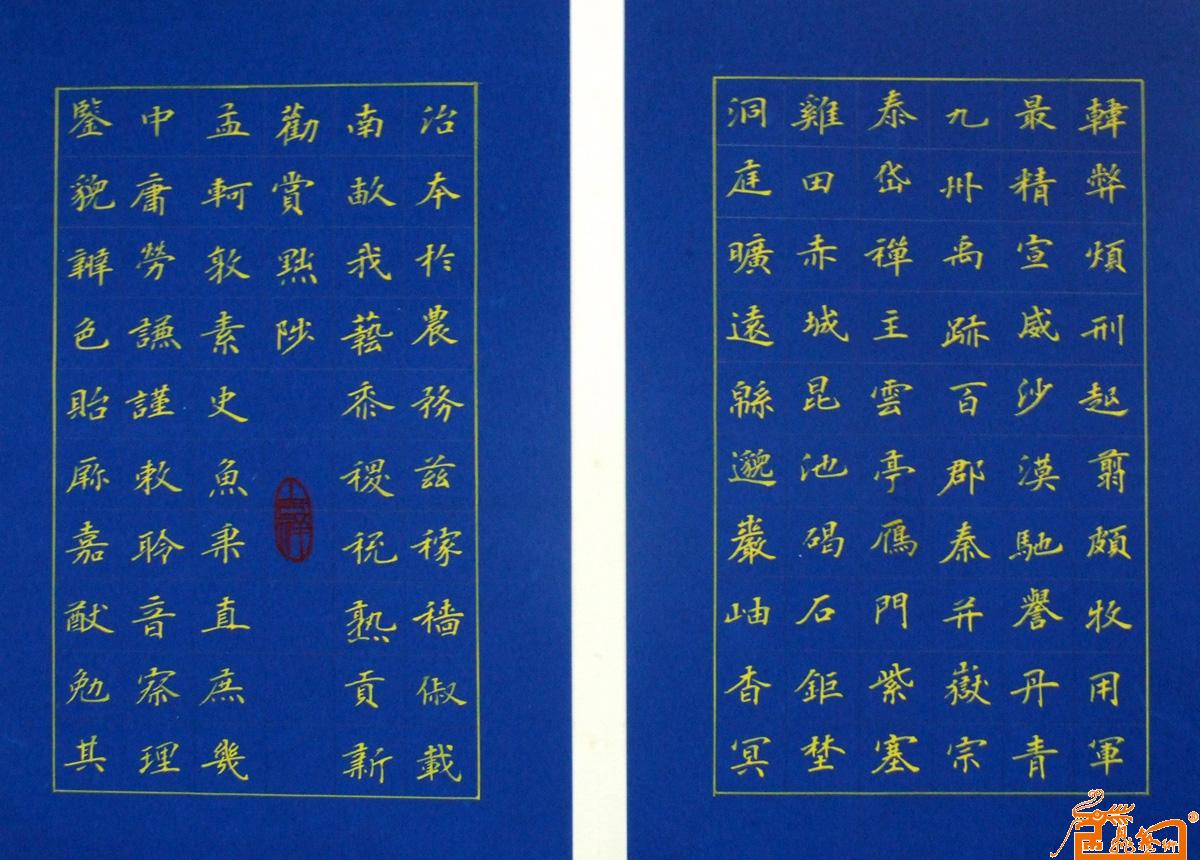 韓弊煩刑起翦頗牧用軍
最精宣威沙漠馳譽丹青
九州禹跡百郡秦并嶽宗
泰岱禪主雲亭鴈門紫塞
雞田赤城昆池碣石鉅埜
洞庭曠遠緜邈巖岫杳冥
治本於農務茲稼穡俶載
南畝我藝黍稷稅熟貢新
勸賞黜陟
孟軻敦素史魚秉直庶幾
中庸勞謙謹敕聆音察理
鑒貌辨色貽厥嘉猷勉其